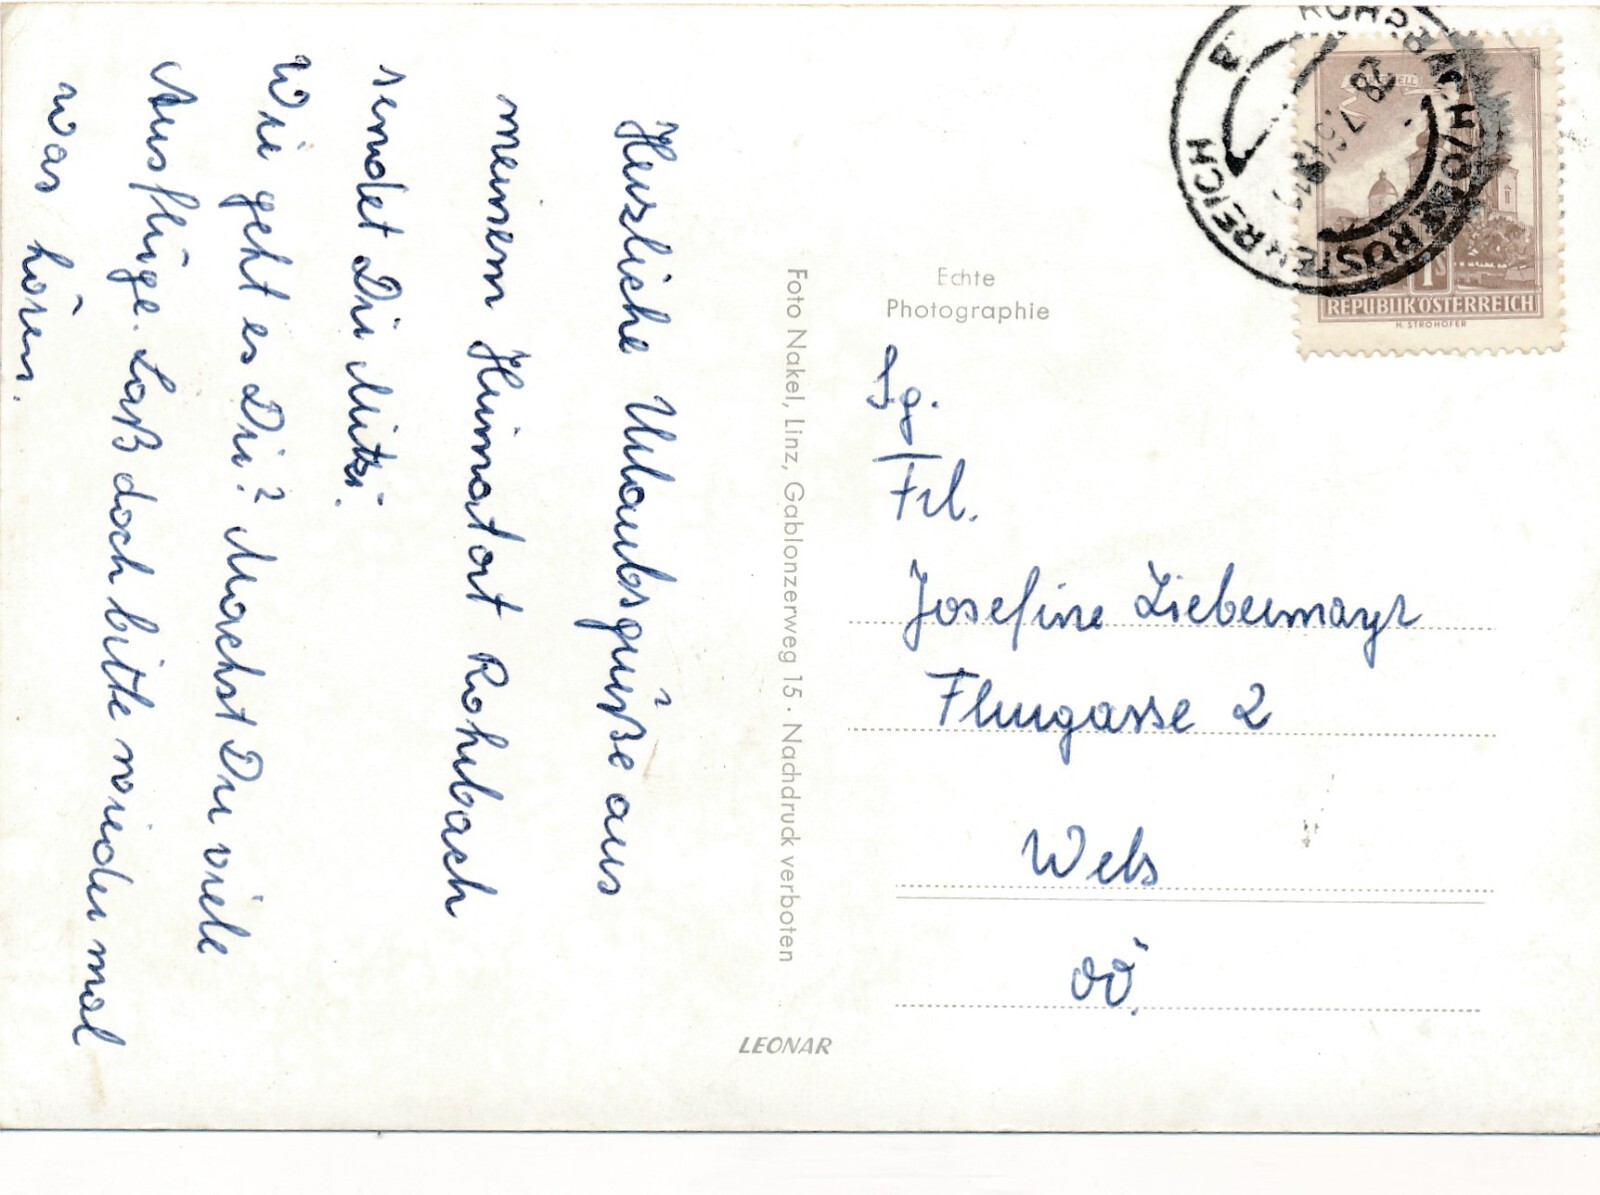 Herzliche Urlaubsgrüße aus
meinem Heimatort Rohrbach
sendet Dir Mitzi.
Wie geht es Dir? Machst Du viele
Ausflüge. Laß doch bitte wieder mal
was hören.
Foto Nakel, Linz, Gablonzerweg 15 · Nachdruck verboten
LEONAR
Echte
Photographie
ROHRBACH/OBERÖSTERREICH
REPUBLIK ÖSTERREICH
H. STROHOFER
Frl.
Josefine Liebermayr
Flurgasse 2
Wels
OÖ.